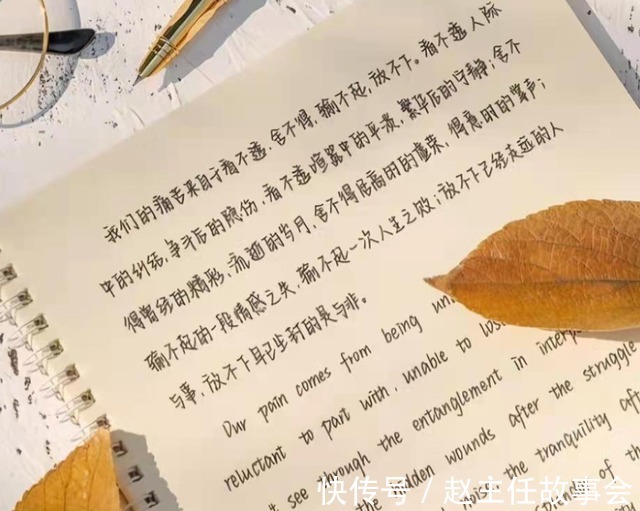 我们的痛苦来自于看不透,舍不得,输不起,放不下。看不透人际
中的纠结,争斗后的隐伤,看不透喧嚣中的平淡,繁华后的宁静;舍不
得曾经的精彩,流逝的岁月,舍不得居高时的虚荣,得意时的掌声;
输不起的一段情感之失,输不起一次人生之败;放不下已经走远的人
与事,放不下早已尘封的是与非。
Our pain comes from being
reluctant to part with, unable to
see through the entanglement in
wounds after the struggle
the tranquility
of the
快传号 / 赵主任故事会